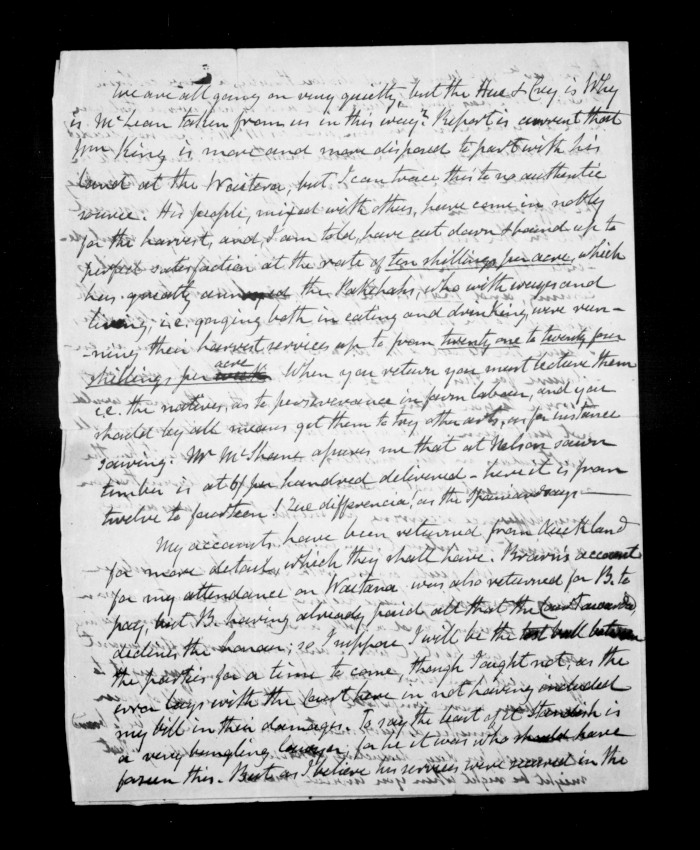 We are all going on very quietly, but the Hue & Crey is Why
is McLean taken from us in this way? Report is current that
Wm King is more and more disposed to part with his
land at the Waitera, but I can trace this to no authentic
source. His people, mixed with others, have come in nobly
for the harvest, and, I am told, have cut down & bound up to
perfect satisfaction at the rate of ten shillings per acre, which
has greatly annoyed the Pakehahs, who with wages and
living, i.e. gorging both in eating and drinking, were run-
-ning their harvest services up to from twenty one to twenty four
shillings per acre. When you return you must lecture them
i.e. the natives, as to perseverance in farm labour, and you
should by all means get them to try other arts, as for instance
sawing. Mr McShane apures me that at Nelson sawn
timber is at 6/ per hundred delivered - here it is from
twelve to fourteen! Que differencia! as the Spaniard says
My accounts have been returned from Auckland
for more details, which they shall have. Brown's account
for my attendance on Waitana was also returned for B. to
pay, but B. having already paid all that the Court awarded,
declines the honour; so, I suppose, I will be the between
the parties for a time to come, though I ought not, as the
error lays with the Court here in not having included
my bill in their damages. To say the least of it Standish is
a very bungling lawyer, for he it was who should have
forseen this. But as I believe his services were in the